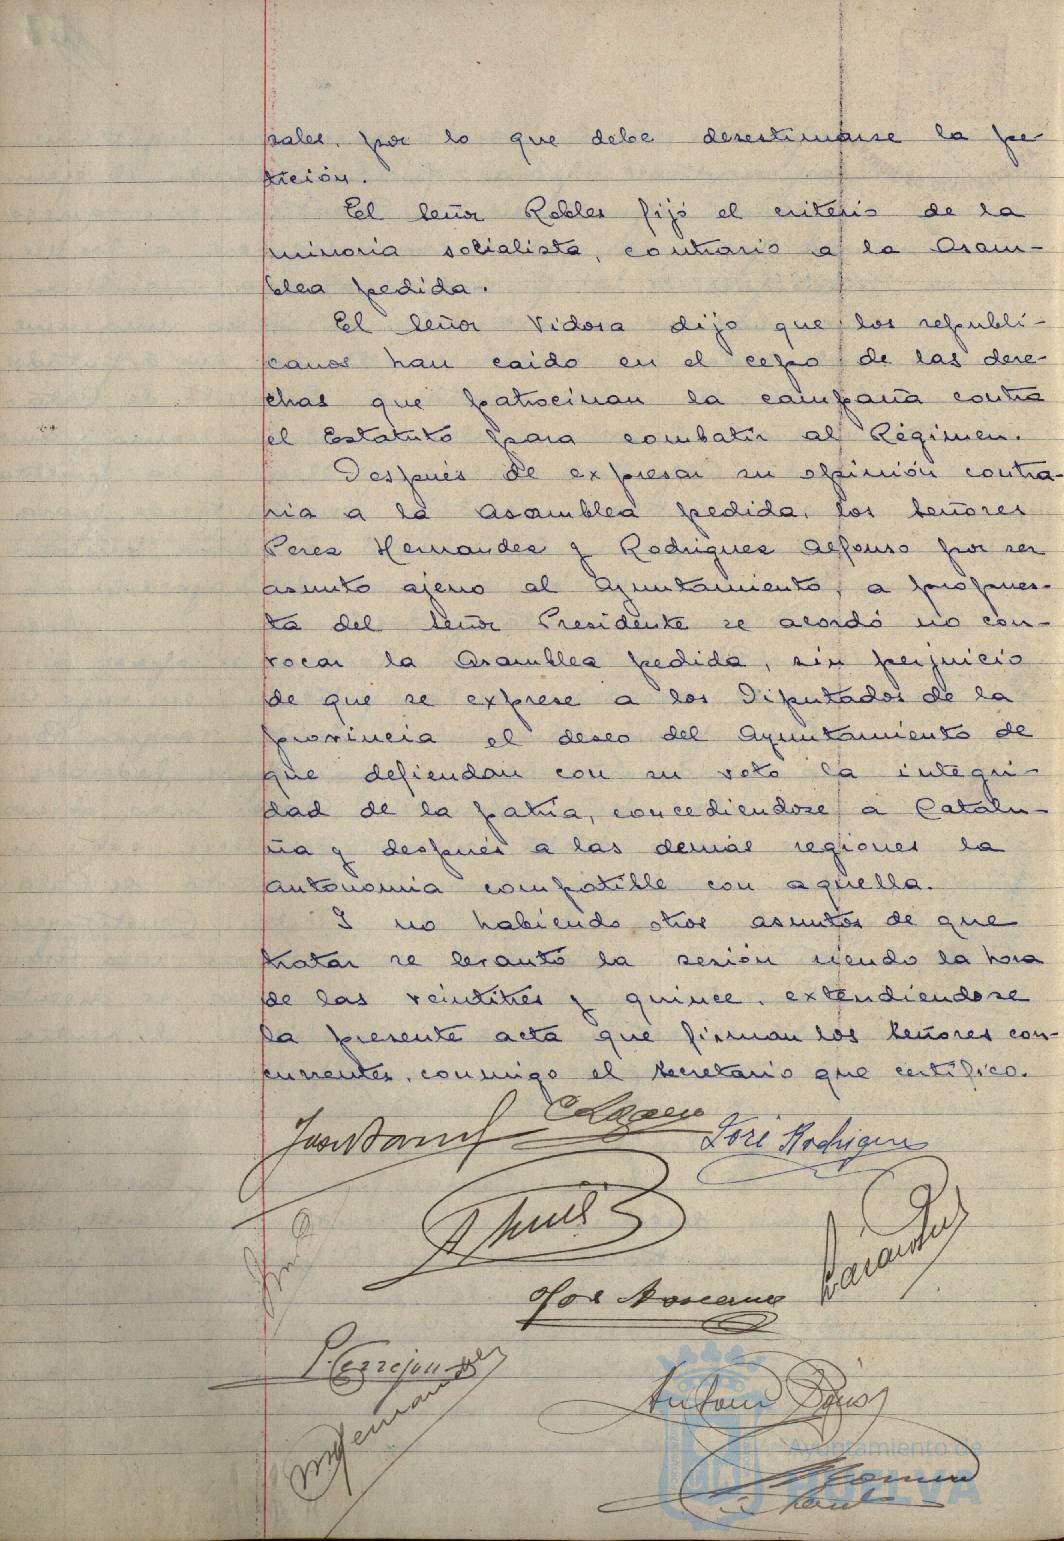 sales, por lo que debe desestimarse la pe
tición.
El Señor Robles fijó el criterio de la
minoria socialista, contrario a la Asam-
blea pedida.
El Señor Vidosa dijo que los republi-
canos han caido en el cepo de las dere-
chas que patrocinan la campaña contra
el Estatuto para combatir al Régimen.
Después de expresar su opinión contra-
ria a la asamblea pedida, los Señores
Perez Hernandez y Rodriguez Alfonso por ser
asunto ajeno al Ayuntamiento, a propues-
ta del Señor Presidente se acordó no con-
vocar la Asamblea pedida, sin perjuicio
de que se exprese a los Diputados de la
provincia el deseo del Ayuntamiento de
que defiendan con su voto la integri-
dad de la patria, concediendose a Catalu-
ña y después a las demás regiones la
autonomia compatible con aquella.
Y no habiendo otros asuntos de que
tratar se levantó la sesión siendo la hora
de las veintitres y quince, extendiendose
la presente acta que firman los Señores con-
currentes, conmigo el Secretario que certifico.
José Rodriguez
José
Antonio
Ayuntamiento de
HUELVA